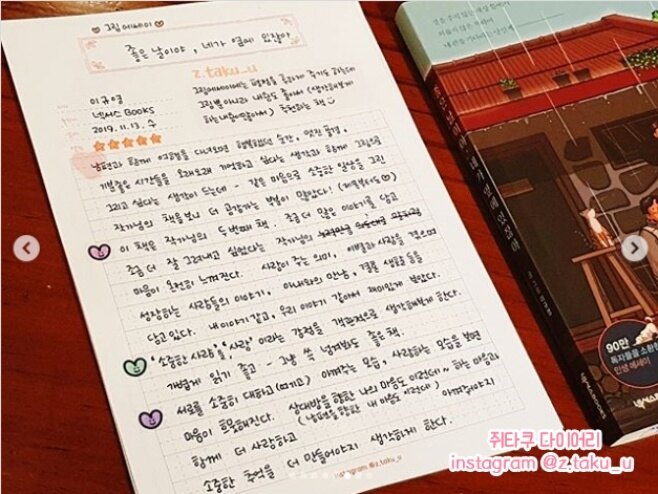 그림에세이
좋은 날이야, 네가 옆에 있잖아
z.taku_u
그림에세이는 편견을 흔하게 주기도 하는데
이규영
그림뿐아니라 내용도 좋아서 (생각해보게
넥서스 Books
하는 내용이많아서) 추천하는 책
2019. 11. 13. 수
남편과 함께 여행을 다녀오면 행복했던 순간, 멋진 풍경,
기분좋은 시간들을 오래오래 기억하고 싶다는 생각과 함께 그림으로
그리고 싶다는 생각이 드는데 - 같은 마음으로 소중한 일상을 그린
작가님의 책을보니 더 공감가는 부분이 많았다! (제목부터도)
이 책은 작가님의 두번째 책. 조금 더 많은 이야기를 담고
조금 더 잘 그려내고 싶었다는 작가님의
마음이 온전히 느껴진다. 사랑이 주는 의미, 이별과 사랑을 겪으며
성장하는 사람들의 이야기, 아내와의 만남, 결혼 생활 등을
담고있다. 내 이야기같고, 우리 이야기 같아서 재미있게 보았다.
'소중한 사람'을, '사랑' 이라는 감정을 객관적으로 생각해보게 한다.
가볍게 읽기 좋고 그냥 쓱 넘겨봐도 좋은 책.
서로를 소중히 대하고 (여기고) 아껴주는 모습, 사랑하는 모습을 보면
마음이 흐뭇해진다. 상대방을 향한 나의 마음도 이런데~ 하는 마음과
함께 더 사랑하고 (남편을 향한 내 마음도 이런데) 아껴줘야지
소중한 추억을 더 만들어야지 생각하게 한다.
instagram @z.taku_u
좋은 날이야, 네가 옆에 있잖아
90만
독자들을 소환한
인생 에세이
넥서스BOOKS
쥐타쿠 다이어리
instagram @z.taku_u